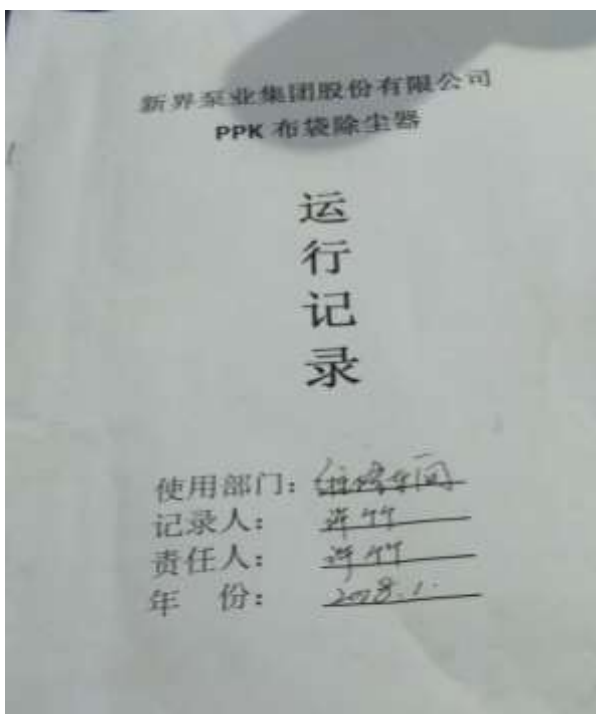 新界泵业集团股份有限公司
PPK 布袋除尘器
运
行
记
录
使用部门：车间
记录人：许竹
责任人：许竹
年 份：2018.1.